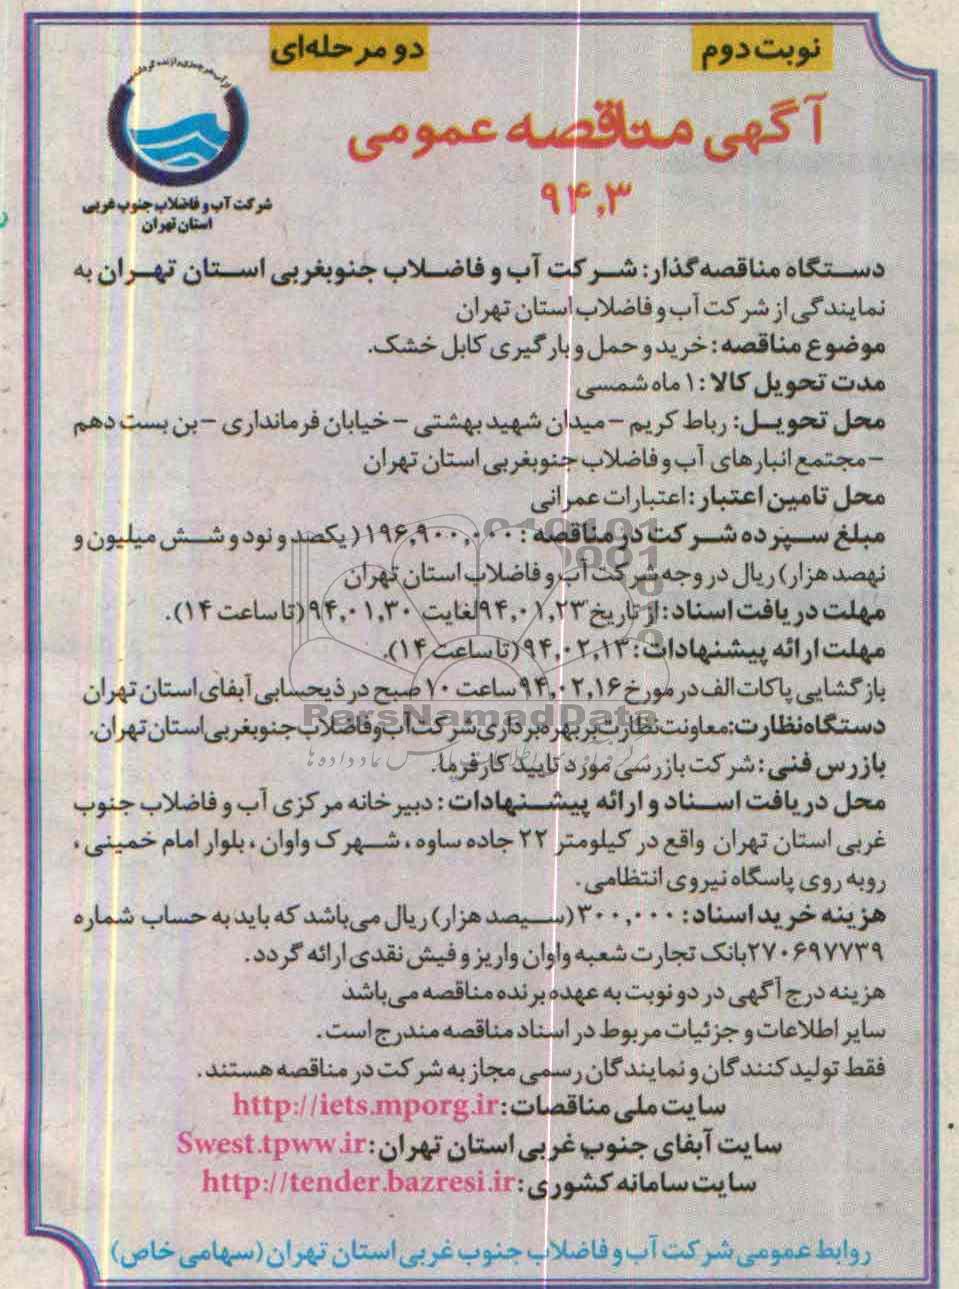 نوبت دوم
دو مرحله‌ای
آگهی مناقصه عمومی
۹۴,۳
شرکت آب و فاضلاب جنوب غربی
استان تهران
دستگاه مناقصه‌گذار: شرکت آب و فاضلاب جنوبغربی استان تهران به
نمایندگی از شرکت آب و فاضلاب استان تهران
موضوع مناقصه: خرید و حمل و بارگیری کابل خشک.
مدت تحویل کالا: ۱ ماه شمسی
محل تحویل: رباط کریم - میدان شهید بهشتی - خیابان فرمانداری - بن بست دهم
- مجتمع انبارهای آب و فاضلاب جنوبغربی استان تهران
محل تامین اعتبار: اعتبارات عمرانی
مبلغ سپرده شرکت در مناقصه: ۱۹۶,۹۰۰,۰۰۰ (یکصد و نود و شش میلیون و
نهصد هزار) ریال در وجه شرکت آب و فاضلاب استان تهران
مهلت دریافت اسناد: از تاریخ ۹۴,۰۱,۲۳ لغایت ۹۴,۰۱,۳۰ (تا ساعت ۱۴).
مهلت ارائه پیشنهادات: ۹۴,۰۲,۱۳ (تا ساعت ۱۴).
بازگشایی پاکات الف در مورخ ۹۴,۰۲,۱۶ ساعت ۱۰ صبح در ذیحسابی آبفای استان تهران
دستگاه نظارت: معاونت نظارت بر بهره‌برداری شرکت آب و فاضلاب جنوبغربی استان تهران.
بازرس فنی: شرکت بازرسی مورد تایید کارفرما.
محل دریافت اسناد و ارائه پیشنهادات: دبیرخانه مرکزی آب و فاضلاب جنوب
غربی استان تهران واقع در کیلومتر ۲۲ جاده ساوه، شهرک واوان، بلوار امام خمینی،
روبه روی پاسگاه نیروی انتظامی.
هزینه خرید اسناد: ۳۰۰,۰۰۰ (سیصد هزار) ریال می‌باشد که باید به حساب شماره
۲۷۰۶۹۷۷۳۹ بانک تجارت شعبه واوان واریز و فیش نقدی ارائه گردد.
هزینه درج آگهی در دو نوبت به عهده برنده مناقصه می‌باشد
سایر اطلاعات و جزئیات مربوط در اسناد مناقصه مندرج است.
فقط تولیدکنندگان و نمایندگان رسمی مجاز به شرکت در مناقصه هستند.
سایت ملی مناقصات: http://iets.mporg.ir
سایت آبفای جنوب غربی استان تهران: Swest.tpww.ir
سایت سامانه کشوری: http://tender.bazresi.ir
روابط عمومی شرکت آب و فاضلاب جنوب غربی استان تهران (سهامی خاص)
ParsNamadData